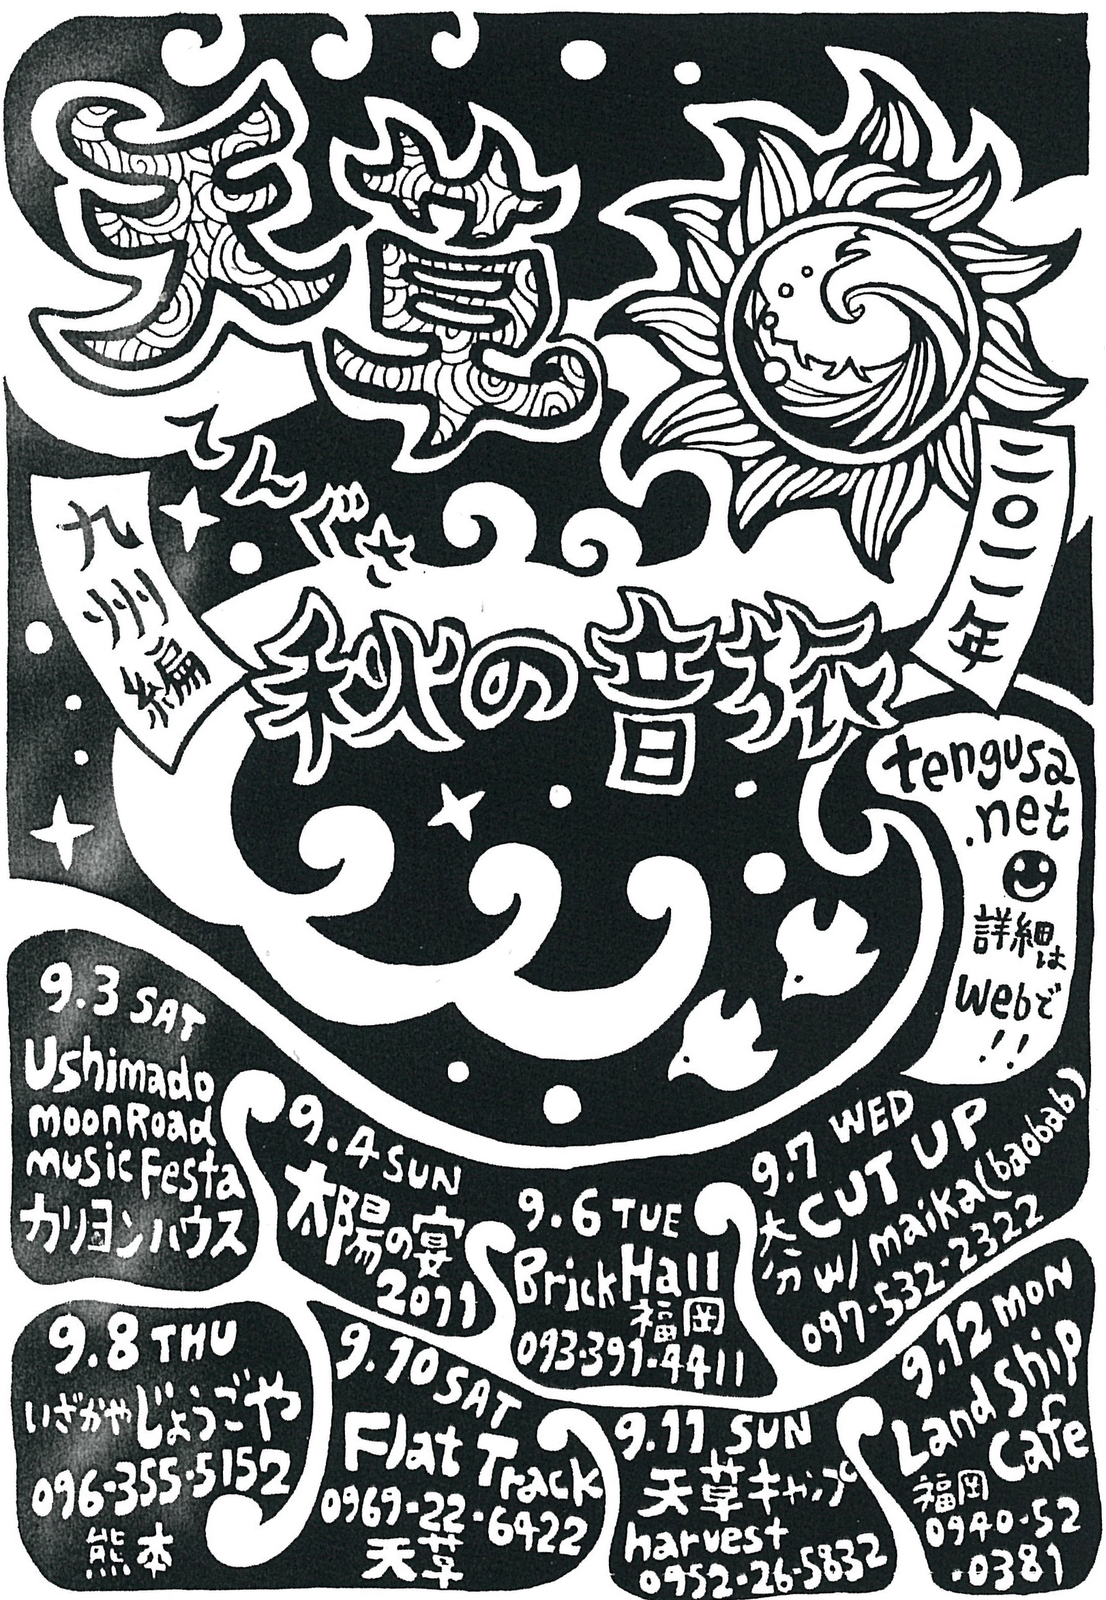 天草
てんぐさ
二〇一一年
九州編
秋の音旅
tengusa
.net
詳細は
webで
!!
9.3 SAT
Ushimado
moonRoad
music Festa
カリヨンハウス
9.4 SUN
太陽の宴
2011
9.6 TUE
Brick Hall
福岡
093-391-4411
9.7 WED
CUT UP
大分 w/ maika(baobab)
097-532-2322
9.8 THU
いざかやじょうごや
096-355-5152
熊本
9.10 SAT
Flat Track
0969-22-6422
天草
9.11 SUN
天草キャンプ
harvest
0952-26-5832
9.12 MON
Land Ship
Cafe
福岡
0940-52
-0381